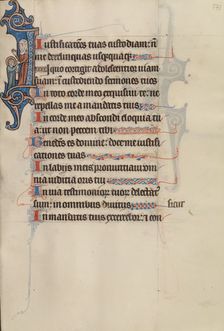 Iustificationes tuas custodiam: n̄
me derelinquas usq̄quaq̄
In quo corrigit adolescentior uiam
suam: in custodiendo sermones tuos
In toto corde meo exquisiui te: ne
repellas me a mandatis tuis
In corde meo abscondi eloquia
tua: ut non peccem tibi
Benedictus es domine: doce me iustifi
cationes tuas
In labijs meis pronuntiaui om
nia iudicia oris tui
In uia testimoniorum tuorum delectatus
sum: in omnibus diuitijs sicut
In mandatis tuis exercebor: et con